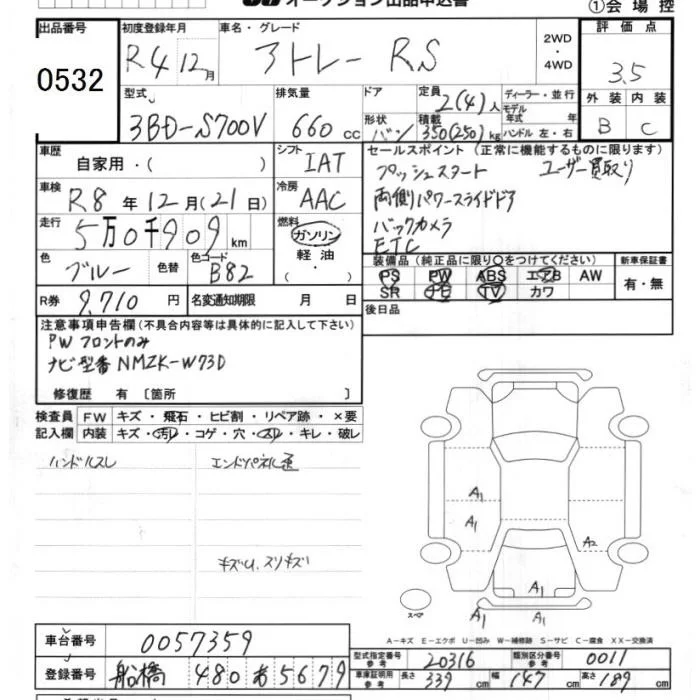 オークション出品申込書
①会場控
出品番号 初度登録年月 車名・グレード 評価点
0532 R4 12月 アトレー RS 2WD ・ 4WD 3.5
型式 排気量 ドア 定員 2(4)人 ディーラー・並行 外装 内装
3BD-S700V 660cc 形状 バン 積載 350(250)kg モデル年式 年式 ハンドル 左・右 B C
車歴 自家用・( ) シフト IAT セールスポイント(正常に機能するものに限ります)
車検 R8年12月(21日) 冷房 AAC プッシュスタート ユーザー買取り
両側パワースライドドア
走行 5万0千909km 燃料 ガソリン 軽油 ・( ) バックカメラ
ETC
色 ブルー 色替 色コード B82 装備品(純正品に限り○をつけてください) 新車保証書
PS PW ABS エアB AW 有・無
SR ナビ TV カワ
R券 9,710円 名変通知期限 月 日 後日品
注意事項申告欄(不具合内容等は具体的に記入して下さい)
PW フロントのみ
ナビ型番 NMZK-W73D
修復歴 有〔箇所 〕
検査員 FW キズ・飛石・ヒビ割・リペア跡・×要
記入欄 内装 キズ・汚れ・コゲ・穴・スレ・キレ・破レ
ハンドルスレ エンドパネル
キズU、スリキズ
A1
A1 A2
A1
A1 A1
スペア
A-キズ E-エクボ U-凹み W-補修跡 S-サビ C-腐食 XX-交換済
車台番号 0057359
型式指定番号 参考 20316 類別区分番号 参考 0011
登録番号 船橋 480 あ 5679
車庫証明用 参考 長さ 339cm 幅 147cm 高さ 189cm